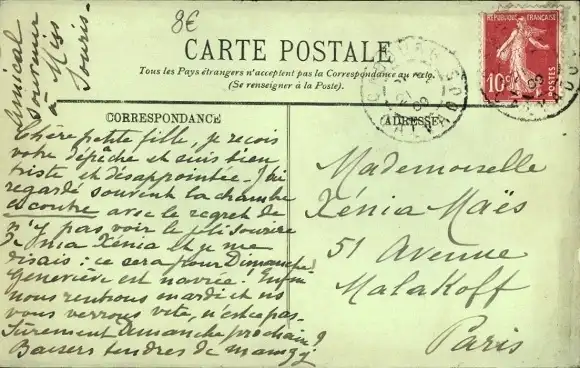 8€
Amical
souvenir
à Miss
Souris-
CARTE POSTALE
Tous les Pays étrangers n'acceptent pas la Correspondance au recto.
(Se renseigner à la Poste).
RÉPUBLIQUE FRANÇAISE
10c
POSTES
CALVADOS
CORRESPONDANCE
Chère petite fille, je reçois
votre dépêche et suis bien
triste et désappointée - J'ai
regardé souvent la chambre
avec le regret de
n'y pas voir le joli sourire
de ma Xénia et je me
disais: ce sera pour Dimanche!
Geneviève est navrée! Enfin
nous rentrons mardi et ns
vous verrons vite, n'est ce pas-
Sûrement Dimanche prochain?
Baisers tendres de
ADRESSE
Mademoiselle
Xénia Maës
51 Avenue
Malakoff
Paris